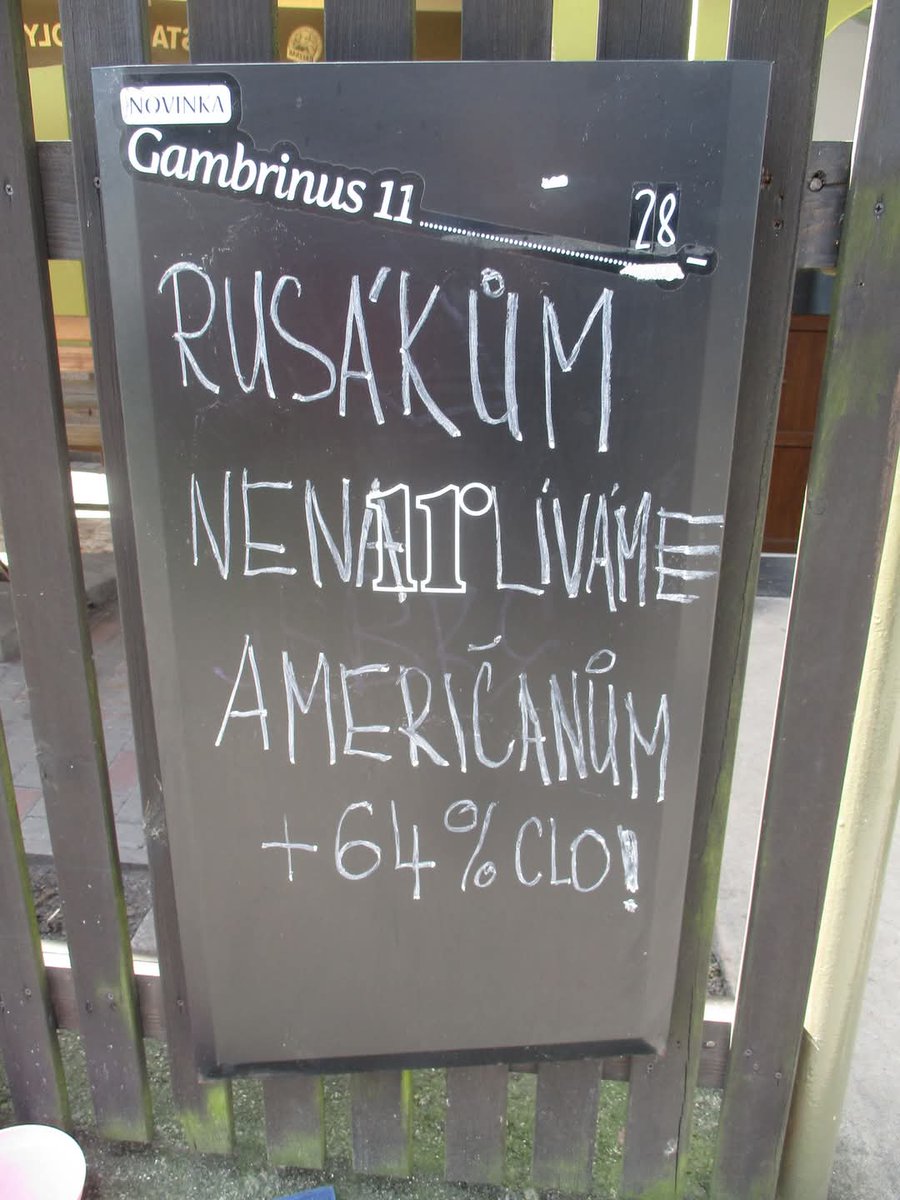 NOVINKA
Gambrinus 11
28
RUSÁKŮM
NENA11°LÍVÁME
AMERIČANŮM
+64% CLO!